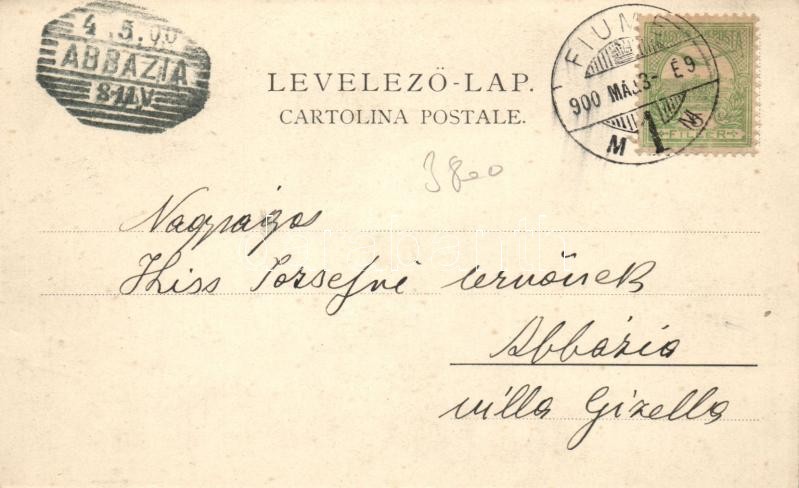 4.5.00
ABBAZIA
8-11.V
LEVELEZŐ-LAP.
CARTOLINA POSTALE.
FIUME
900 MÁJ. 3- É9
M 1
FILLÉR
3800
Nagyságos
Kiss Jozsefné urnőnek
Abbázia
villa Gizella